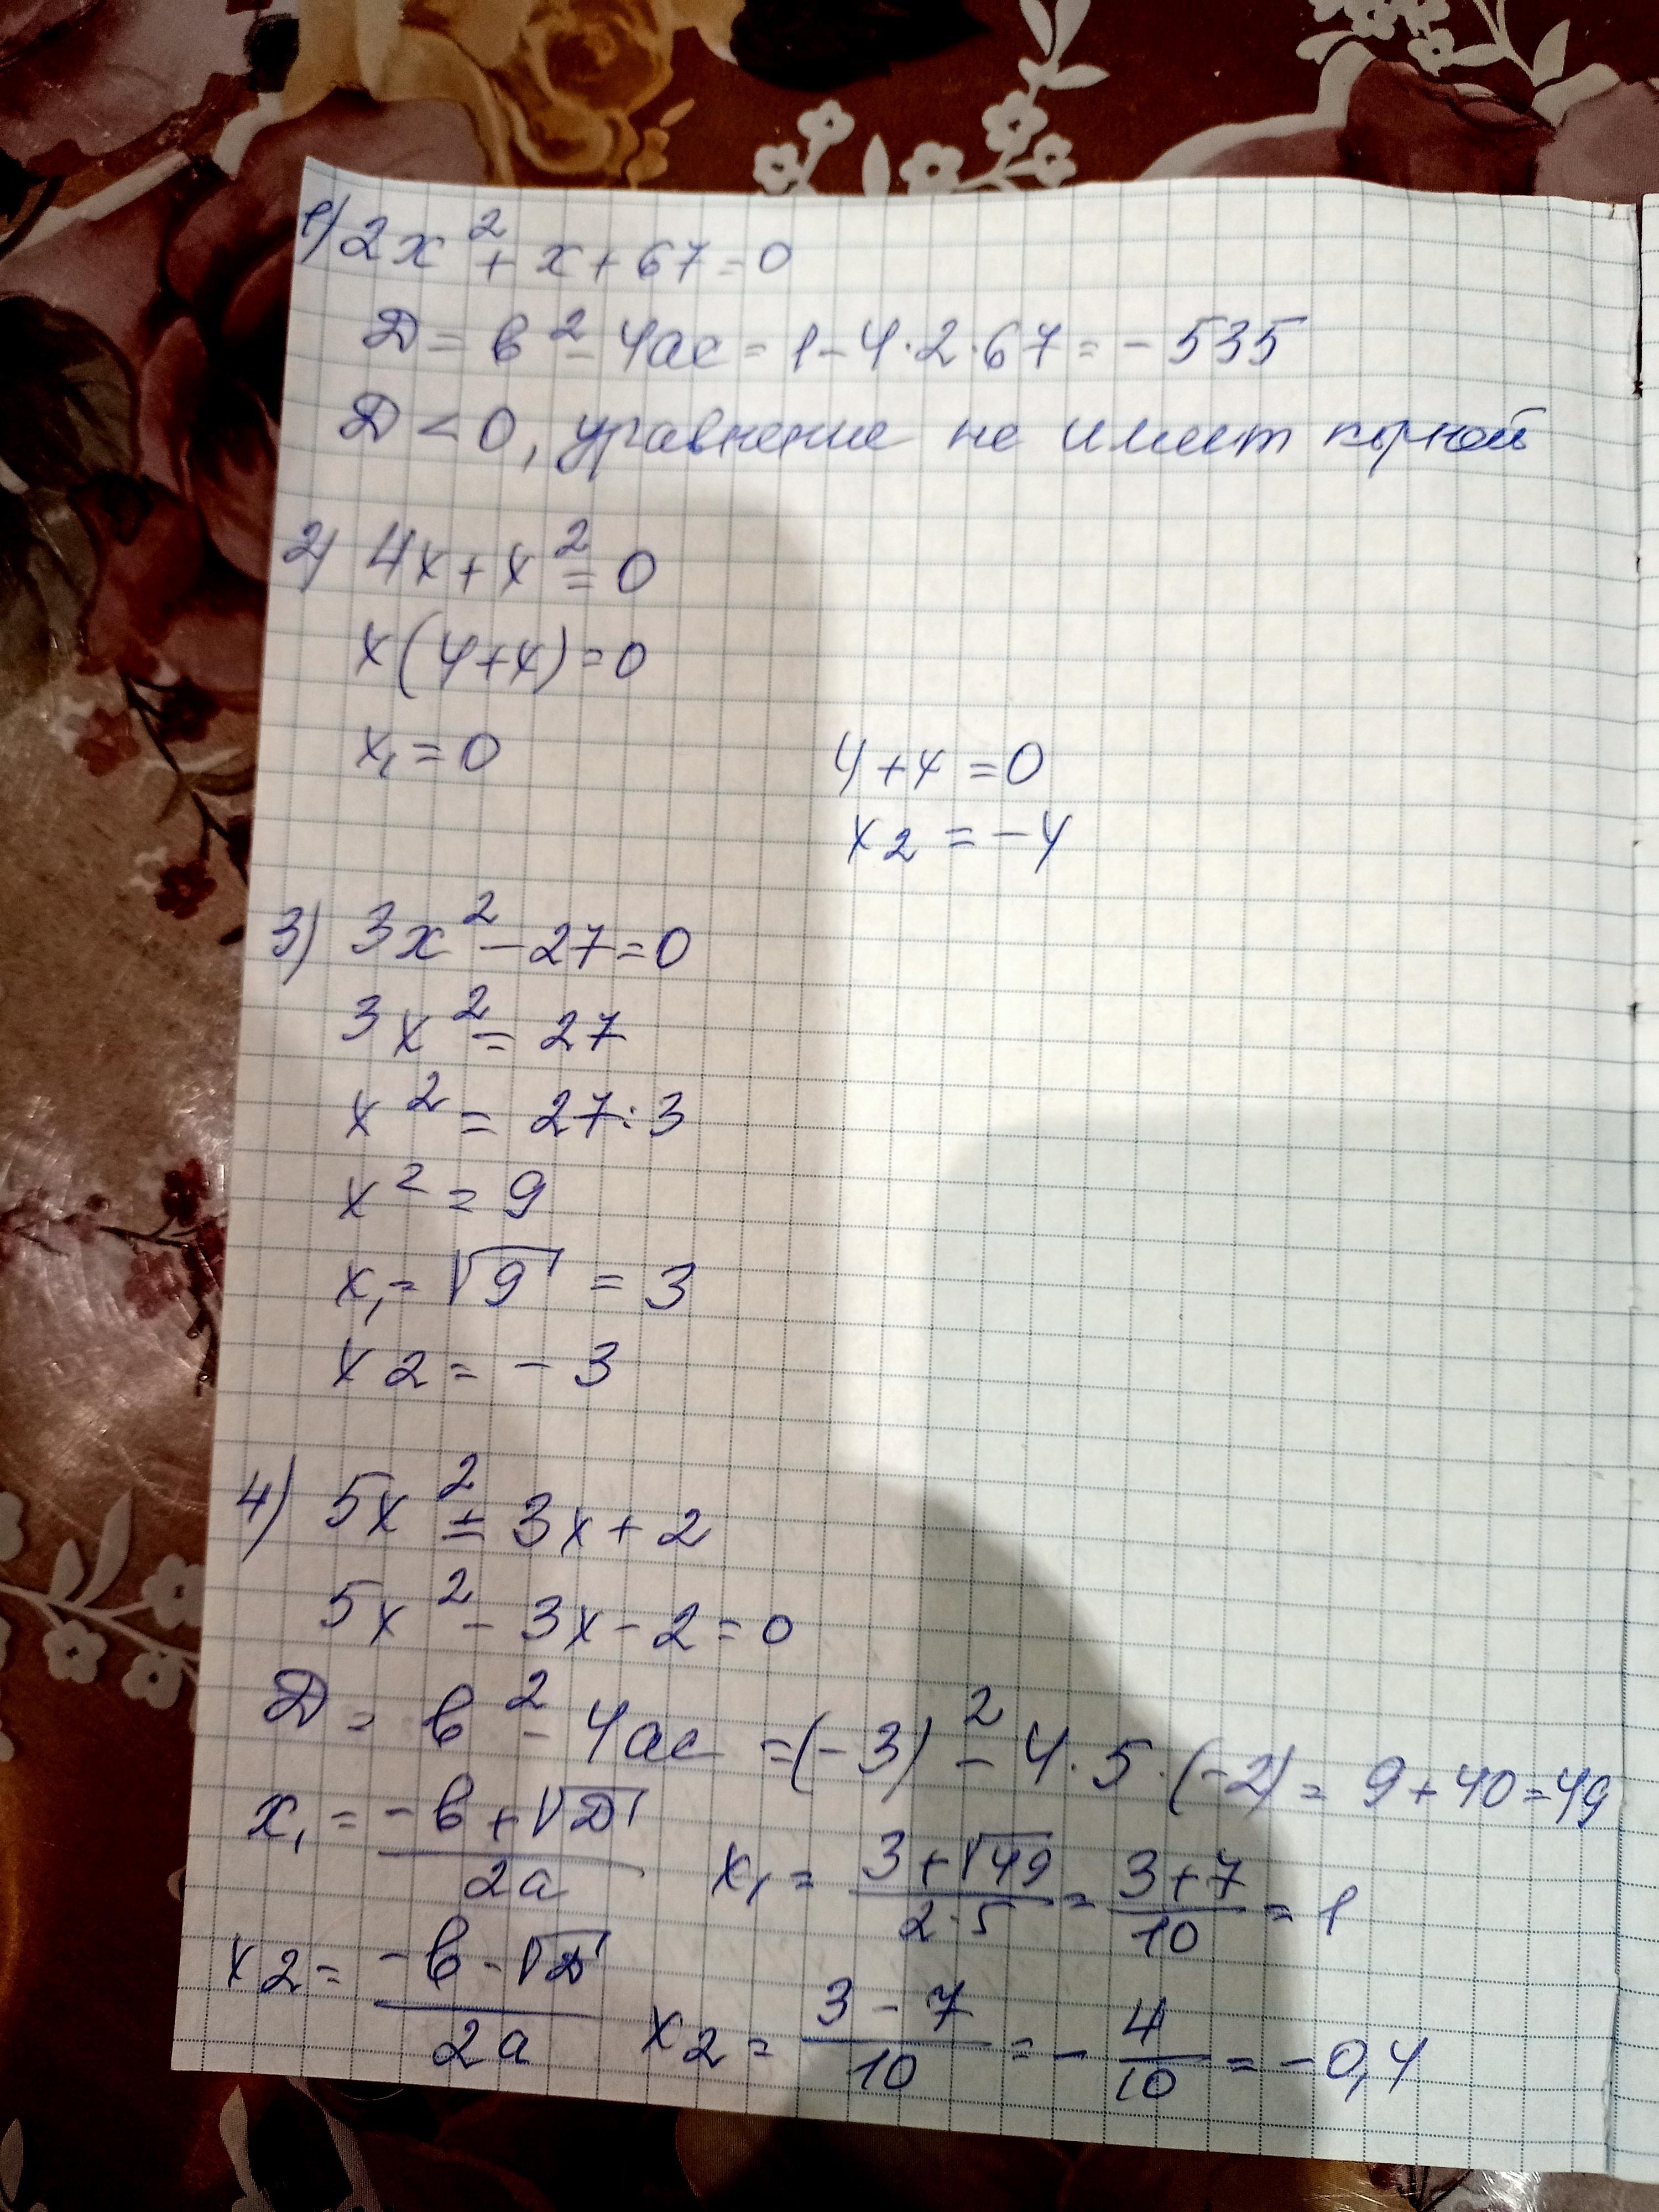 1) 2x² + x + 67 = 0
D = b² - 4ac = 1 - 4·2·67 = - 535
D < 0, уравнение не имеет корней
2) 4x + x² = 0
x(4+x) = 0
x₁ = 0 4 + x = 0
x2 = -4
3) 3x² - 27 = 0
3x² = 27
x² = 27:3
x² = 9
x₁ = √9 = 3
x2 = - 3
4) 5x² = 3x + 2
5x² - 3x - 2 = 0
D = b² - 4ac = (-3)² - 4·5·(-2) = 9 + 40 = 49
x₁ = (-b + √D)/2a x₁ = (3 + √49)/(2·5) = (3 + 7)/10 = 1
x2 = (-b - √D)/2a x2 = (3 - 7)/10 = - 4/10 = - 0,4